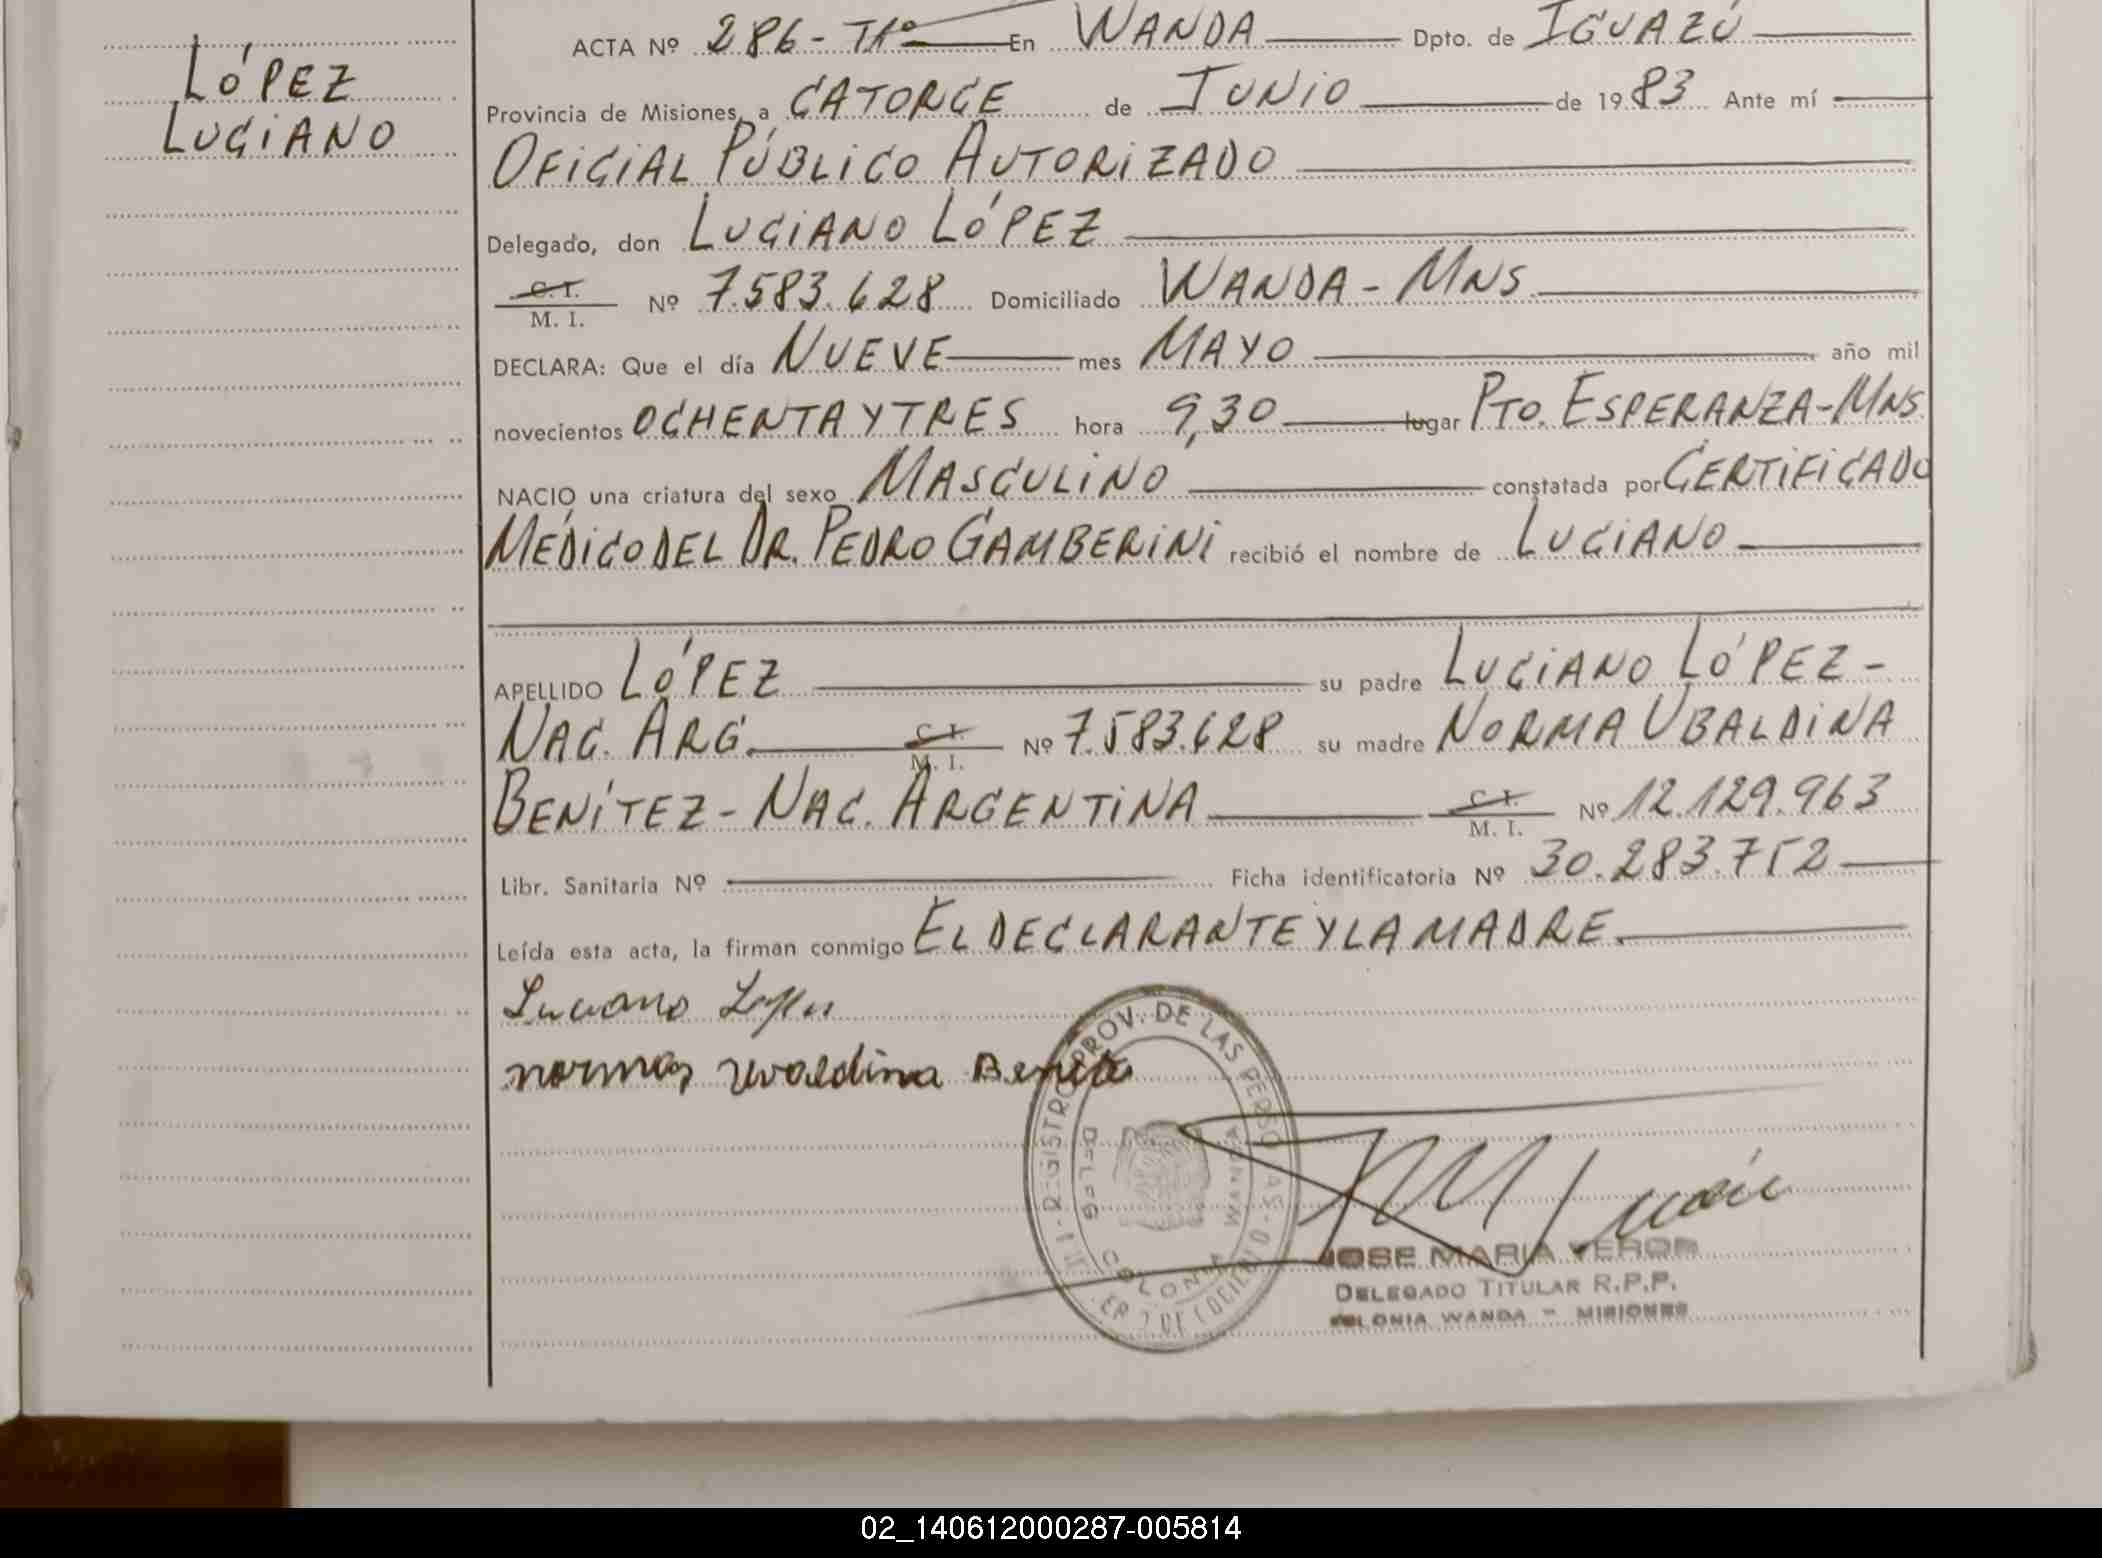 LÓPEZ
LUCIANO
ACTA Nº 286-Tº En WANDA Dpto. de IGUAZÚ
Provincia de Misiones, a CATORCE de JUNIO de 1983 Ante mí
OFICIAL PÚBLICO AUTORIZADO
Delegado, don LUCIANO LÓPEZ
C. I.
M. I. Nº 7.583.628 Domiciliado WANDA - MNS
DECLARA: Que el día NUEVE mes MAYO año mil
novecientos OCHENTA Y TRES hora 9,30 lugar PTO. ESPERANZA-MNS.
NACIO una criatura del sexo MASCULINO constatada por CERTIFICADO
MÉDICO DEL DR. PEDRO GAMBERINI recibió el nombre de LUCIANO
APELLIDO LÓPEZ su padre LUCIANO LÓPEZ-
NAC. ARG. C. I. M. I. Nº 7.583.628 su madre NORMA UBALDINA
BENÍTEZ - NAC. ARGENTINA C. I. M. I. Nº 12.129.963
Libr. Sanitaria Nº Ficha identificatoria Nº 30.283.752
Leída esta acta, la firman conmigo EL DECLARANTE Y LA MADRE.
Luciano Lopez
norma uvaldina Benite
REGISTRO PROV. DE LAS PERSONAS
DELEG
COLONIA
WANDA
JOSE MARIA
DELEGADO TITULAR R.P.P.
COLONIA WANDA - MISIONES
02_140612000287-005814